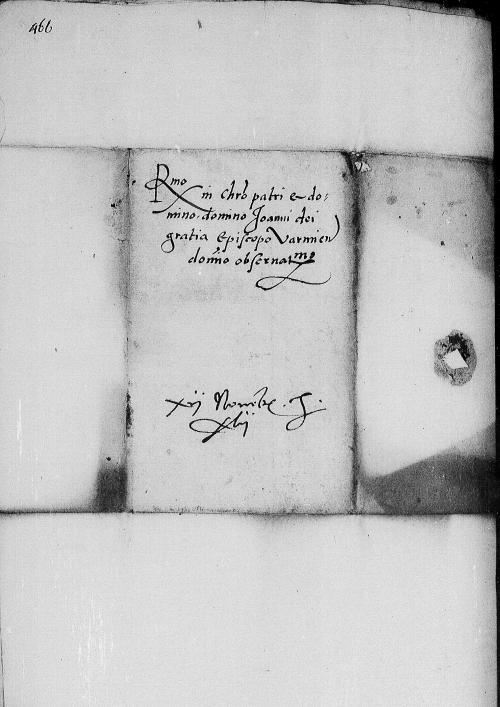 466
Rmo in chro patri et do-
mino domno Joanni dei
gratia Episcopo Varmien
domno observatmo
xij Novebr. J.
xlij